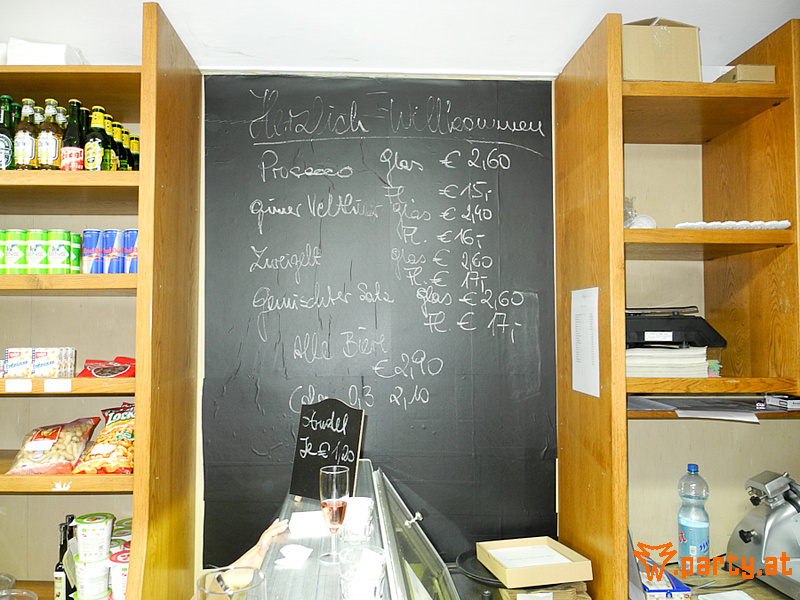 Herzlich-Willkommen
Prosecco Glas € 2,60
Fl. € 15,-
grüner Veltliner Glas € 2,40
Fl. € 16,-
Zweigelt Glas € 2,60
Fl. € 17,-
Gemischter Satz Glas € 2,60
Fl. € 17,-
Alle Biere
€ 2,90
Cola 0,3 2,10
Strudel
Je € 1,20
party.at